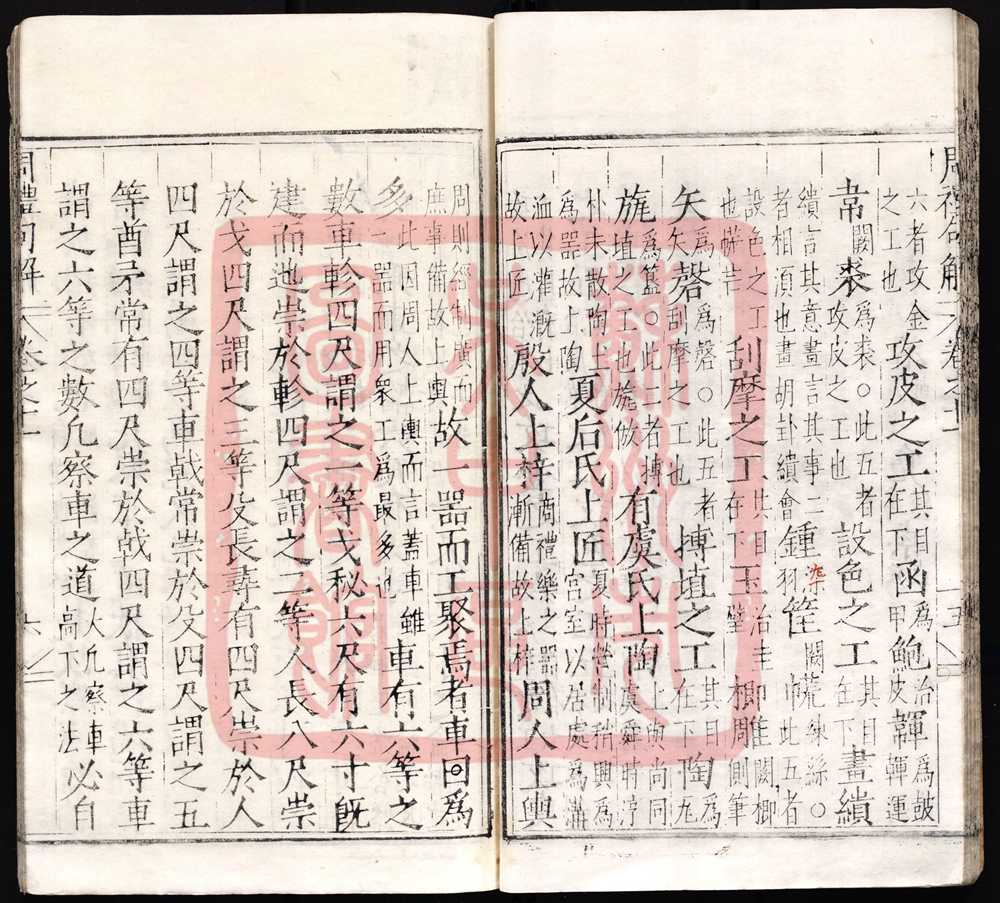 周禮句解 卷之十一
六者攻金之工也攻皮之工其目在下函為治甲鮑皮韗為鼓韗運
韋闕裘為裘○此五者攻皮之工也設色之工其目在下畫繢
繢言其意畫言其事二者相須也畫胡卦繢會鍾染羽筐闕㡛練絲○巾此五者
設色之工也㡛芒刮摩之工其目在下玉治圭璧楖雕闕楖周側筆
矢為矢磬為磬○此五者刮摩之工也摶埴之工其目在下陶為瓦
旊為簋○此二者摶埴之工也旊倣有虞氏上陶上與尚同虞舜時淳
朴未散陶土為器故上陶夏后氏上匠夏時營制稍興為宮室以居處為溝
洫以灌溉故上匠殷人上梓商禮樂之器漸備故上梓周人上輿
周則經制廣而庶事備故上輿故一器而工聚焉者車曰為
多此因周人上輿而言蓋車雖一器而用眾工為最多也車有六等之
數車軫四尺謂之一等戈柲六尺有六寸既
建而迆崇於軫四尺謂之二等人長八尺崇
於戈四尺謂之三等殳長尋有四尺崇於人
四尺謂之四等車戟常崇於殳四尺謂之五
等酋矛常有四尺崇於戟四尺謂之六等車
謂之六等之數凡察車之道大凡察車高下之法必自
周禮句解 卷之十一 六